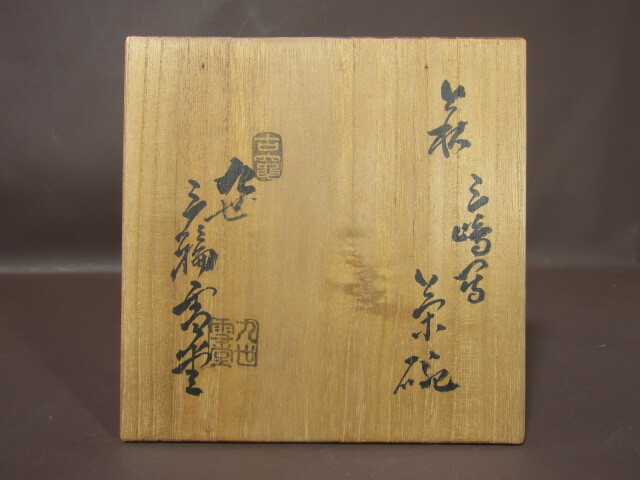 萩 三嶋写 茶碗
古窯
九世 三輪雪堂
九世雪堂